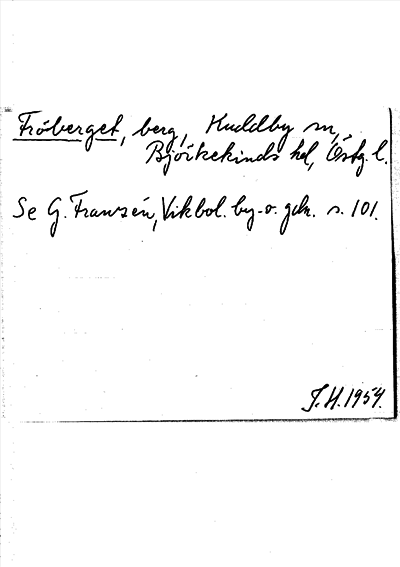 Fröberget, berg, Kuddby sn,
Björkekinds hd, Östg. l.
Se G. Franzén, Vikbol. by- o. gdn. s. 101.
J.H. 1954.